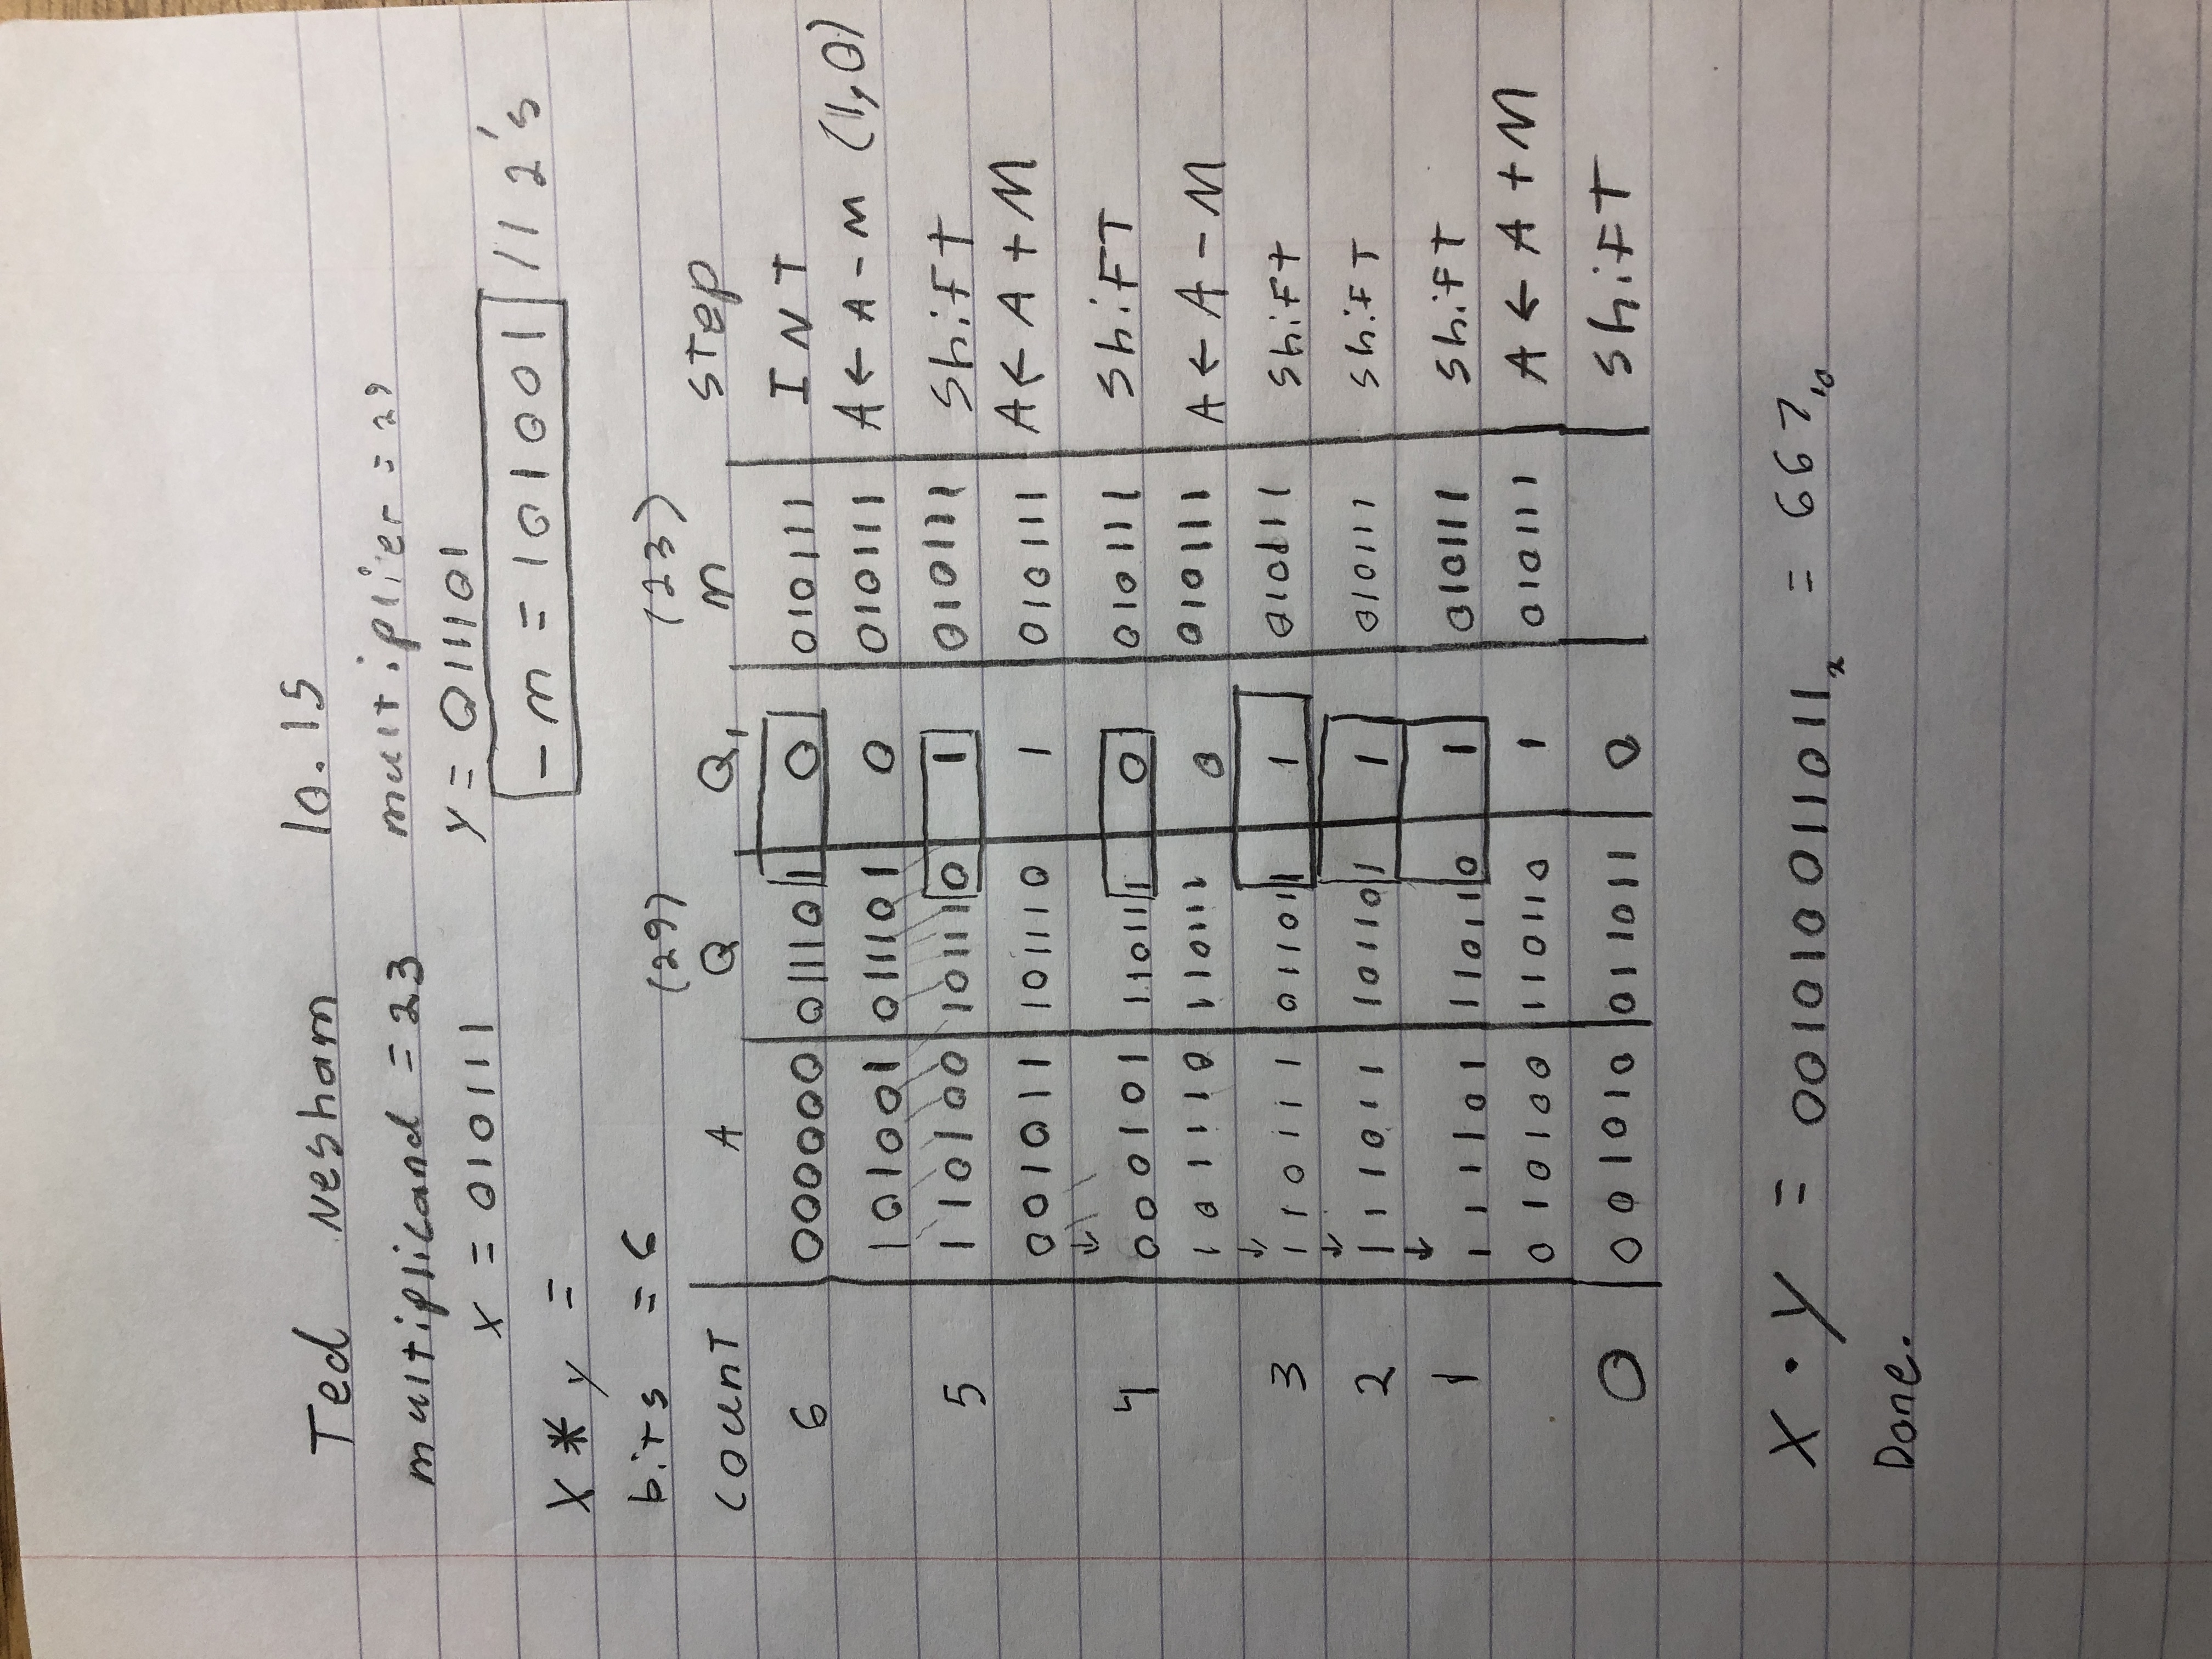 Ted Nesham 10.15
multiplicand = 23 multiplier = 29
x = 010111 y = 011101
-m = 101001 // 2's
X * y =
bits = 6
(29) (23)
count A Q Q1 m step
6 000000 011101 0 010111 INT
101001 011101 0 010111 A ← A - M (1,0)
5 110100 101110 1 010111 shift
001011 101110 1 010111 A ← A + M
4 000101 110111 0 010111 shift
101110 110111 0 010111 A ← A - M
3 110111 011011 1 010111 shift
2 111011 101101 1 010111 shift
1 111101 110110 1 010111 shift
010100 110110 1 010111 A ← A + M
0 001010 011011 0 shift
X · y = 001010011011₂ = 667₁₀
Done.